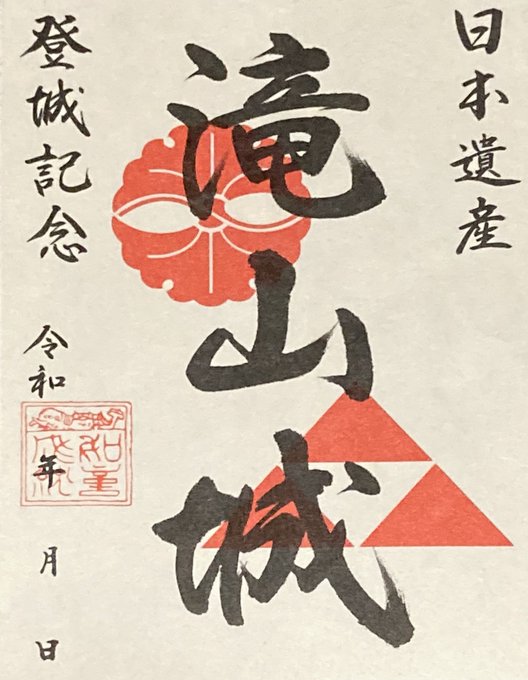 日本遺産
滝山城
登城記念
令和 年 月 日